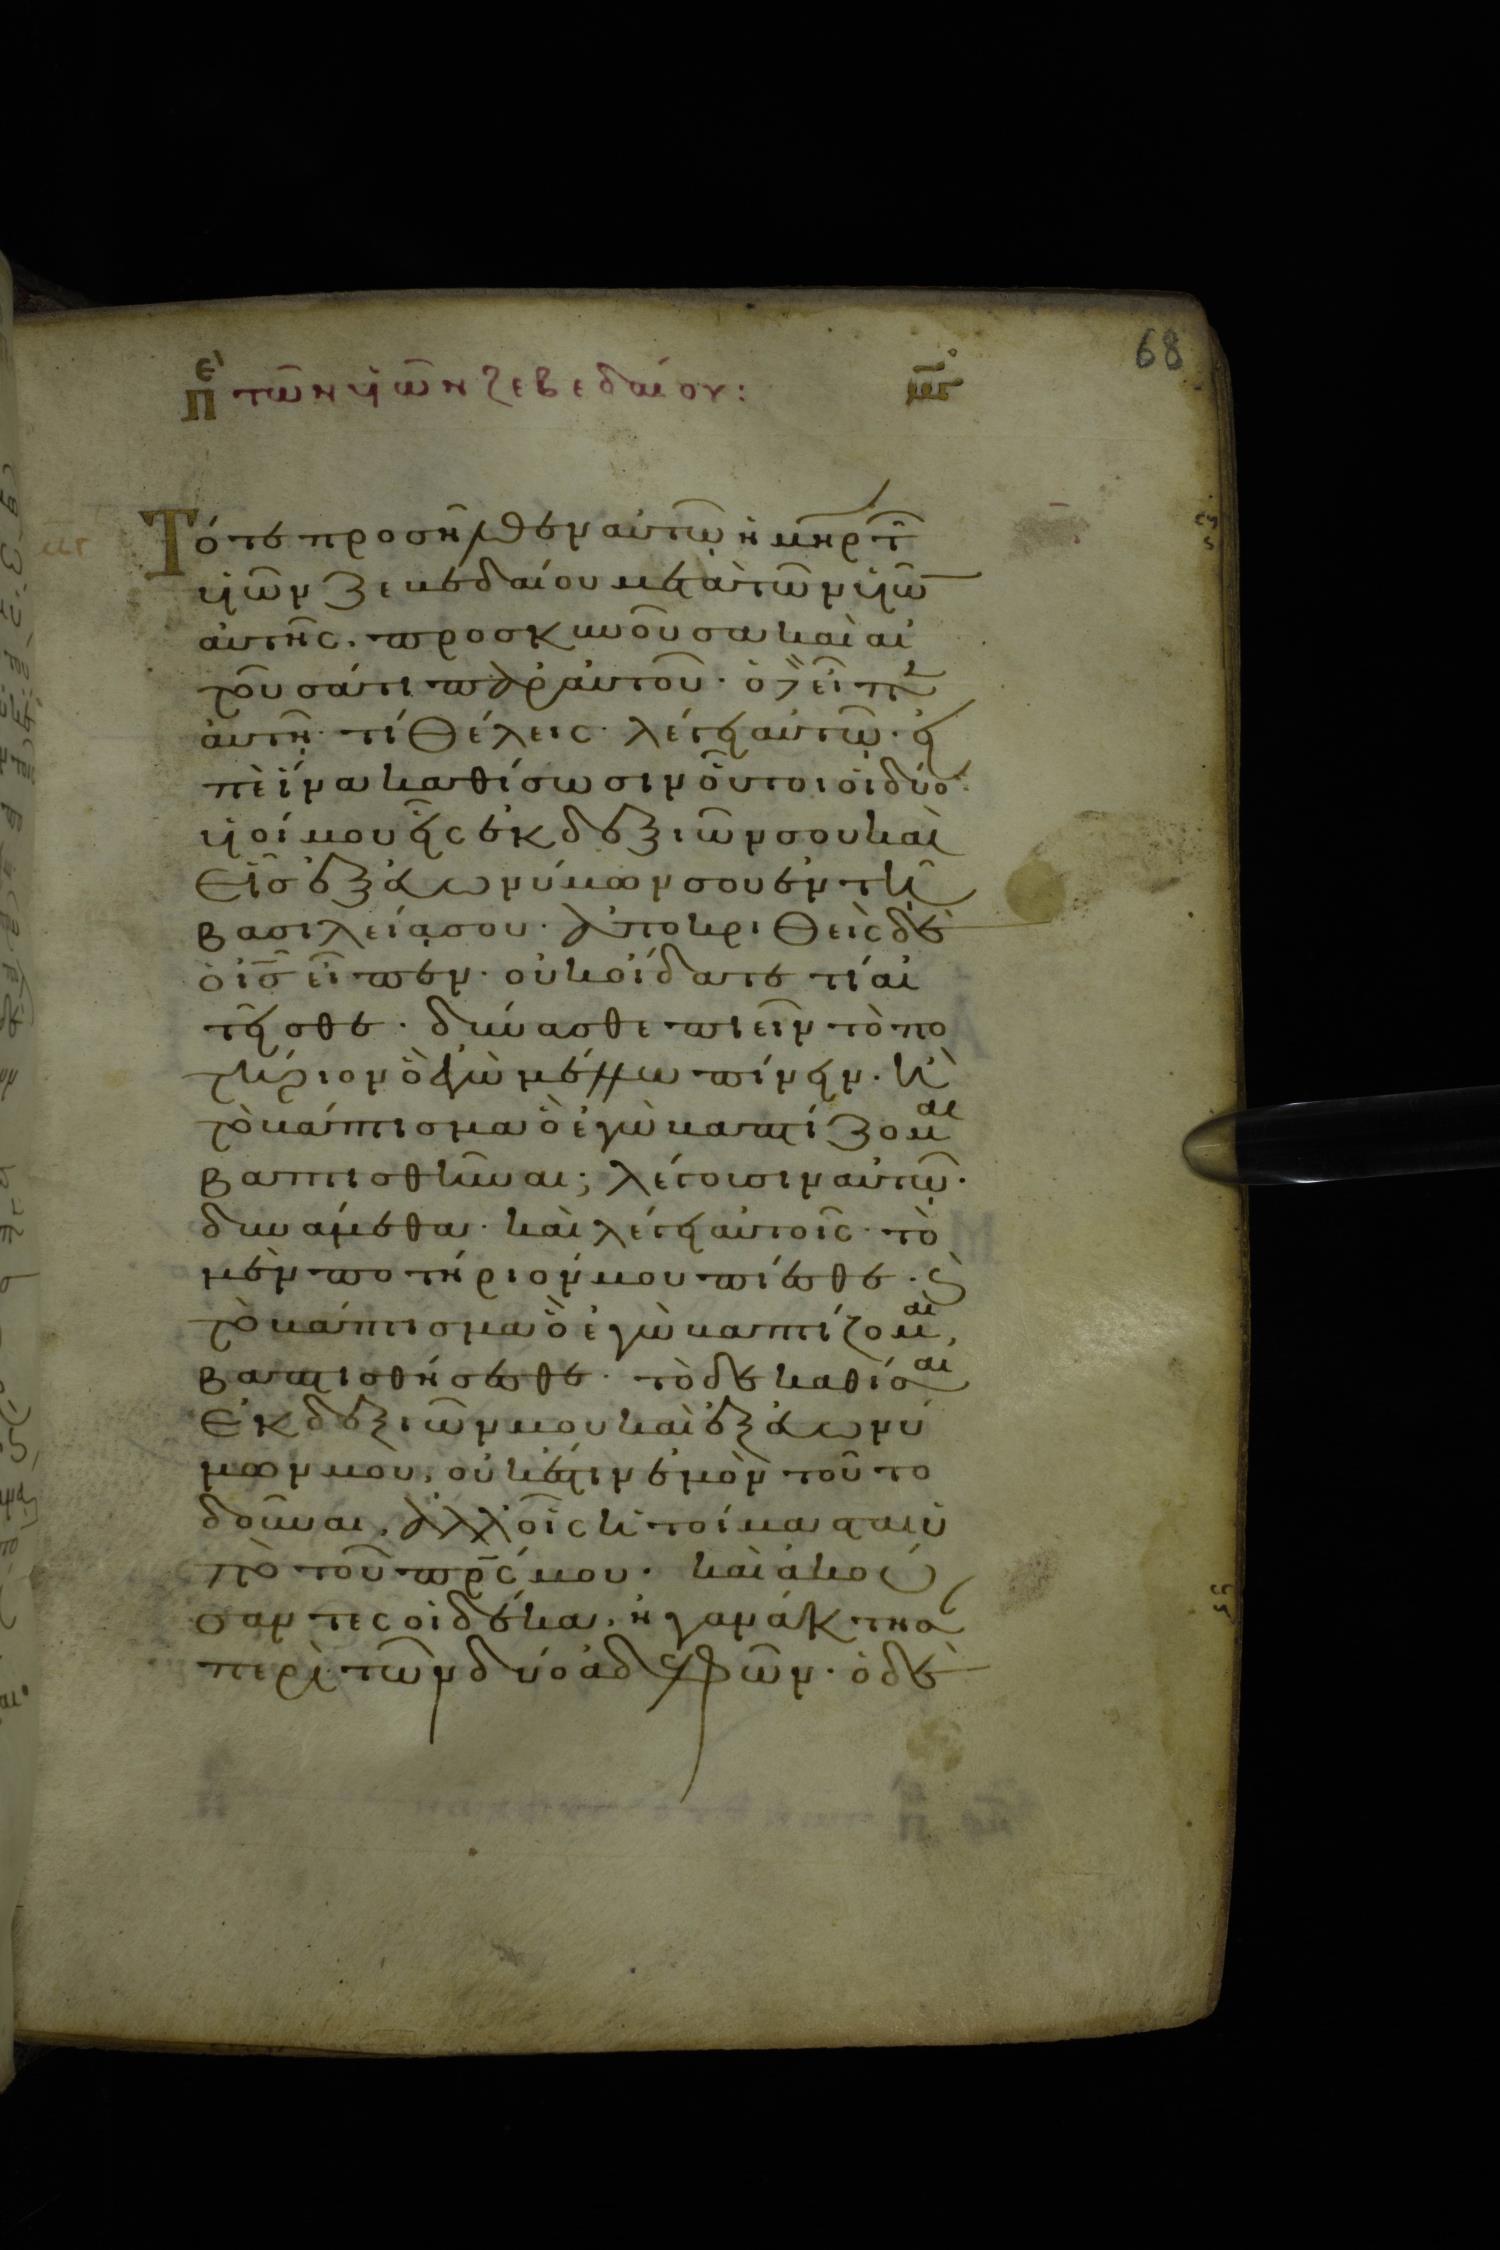 68
πε τῶν υἱῶν ζεβεδαίου:
Τότε προσῆλθεν αὐτῶ ἡ μηρ τ
υἱῶν ζεβεδαίου μετὰ τῶν υἱῶ
αὐτῆς. προσκυνοῦσα καὶ αἰ
τοῦσά τι παρ αὐτοῦ. ὁ δὲ εἶπεν
αὐτῆ τί θέλεις. λέγει αὐτῶ. εἰ
πὲ ἵνα καθίσωσιν οὗτοι οἱ δύο
υἱοί μου εἷς ἐκ δεξιῶν σου καὶ
εἷς ἐξ εὐωνύμων σου ἐν τῆ
βασιλεία σου. ἀποκριθεὶς δὲ
ὁ ις εἶπεν. οὐκ οἴδατε τί αἰ
τεῖσθε. δύνασθε πιεῖν τὸ πο
τήριον ὃ ἐγὼ μέλλω πίνειν. ἢ
τὸ βάπτισμα ὃ ἐγὼ βαπτίζομαι
βαπτισθῆναι; λέγουσιν αὐτῶ.
δυνάμεθα. καὶ λέγει αὐτοῖς. τὸ
μὲν ποτήριόν μου πίεσθε. καὶ
τὸ βάπτισμα ὃ ἐγὼ βαπτίζομαι,
βαπτισθήσεσθε. τὸ δὲ καθίσαι
ἐκ δεξιῶν μου καὶ ἐξ εὐωνύ
μων μου, οὐκ ἔστιν ἐμὸν τοῦτο
δοῦναι, ἀλλ οἷς ἡτοίμασται ὑ
πὸ τοῦ πρς μου. καὶ ἀκού
σαντες οἱ δέκα, ἠγανάκτησα
περὶ τῶν δύο ἀδελφῶν. ὁ δὲ